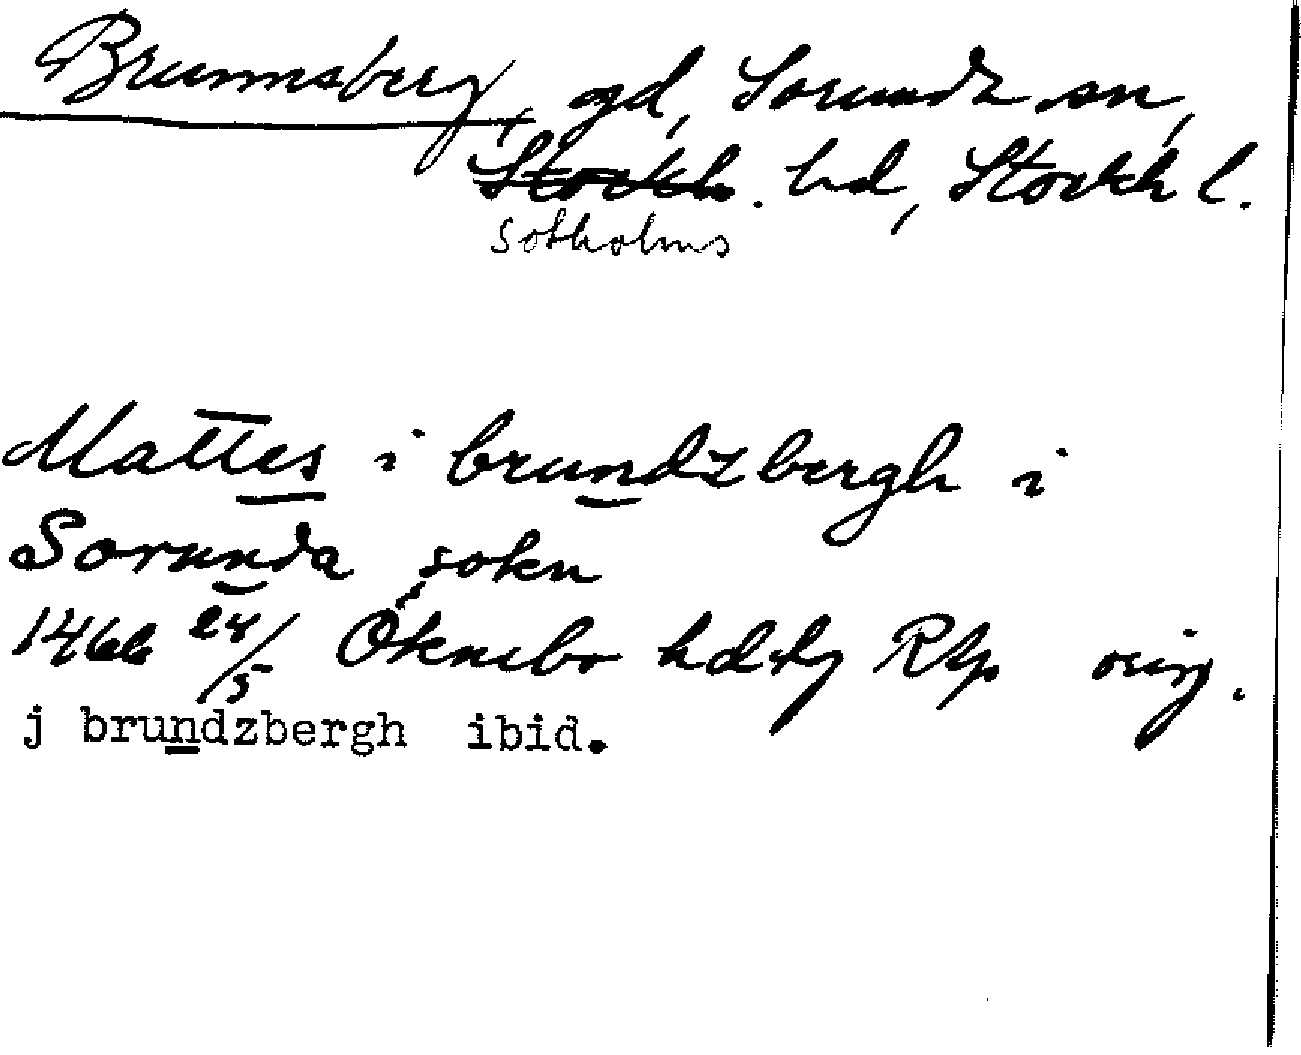 Brunnsberg, gd, Sorunda sn,
Stockh. hd, Stockh l.
Sotholms
Mattes i brundzbergh i
Sorunda sokn
1466 24/5 Öknebo hdtg Rap orig.
j brundzbergh ibid.